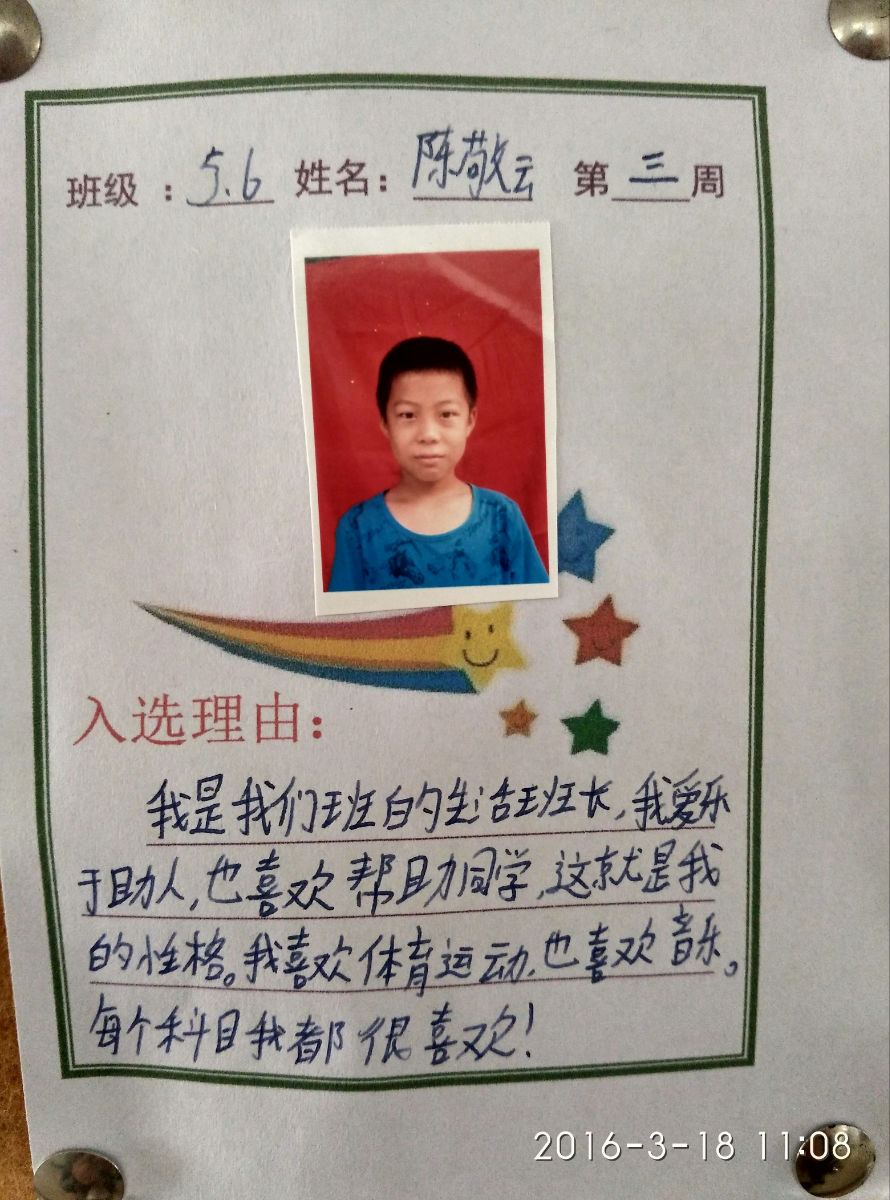 班级：5.6 姓名：陈敬云 第三周
入选理由：
我是我们班的生活班长,我爱乐
于助人,也喜欢帮助同学,这就是我
的性格。我喜欢体育运动,也喜欢音乐。
每个科目我都很喜欢!
2016-3-18 11:08